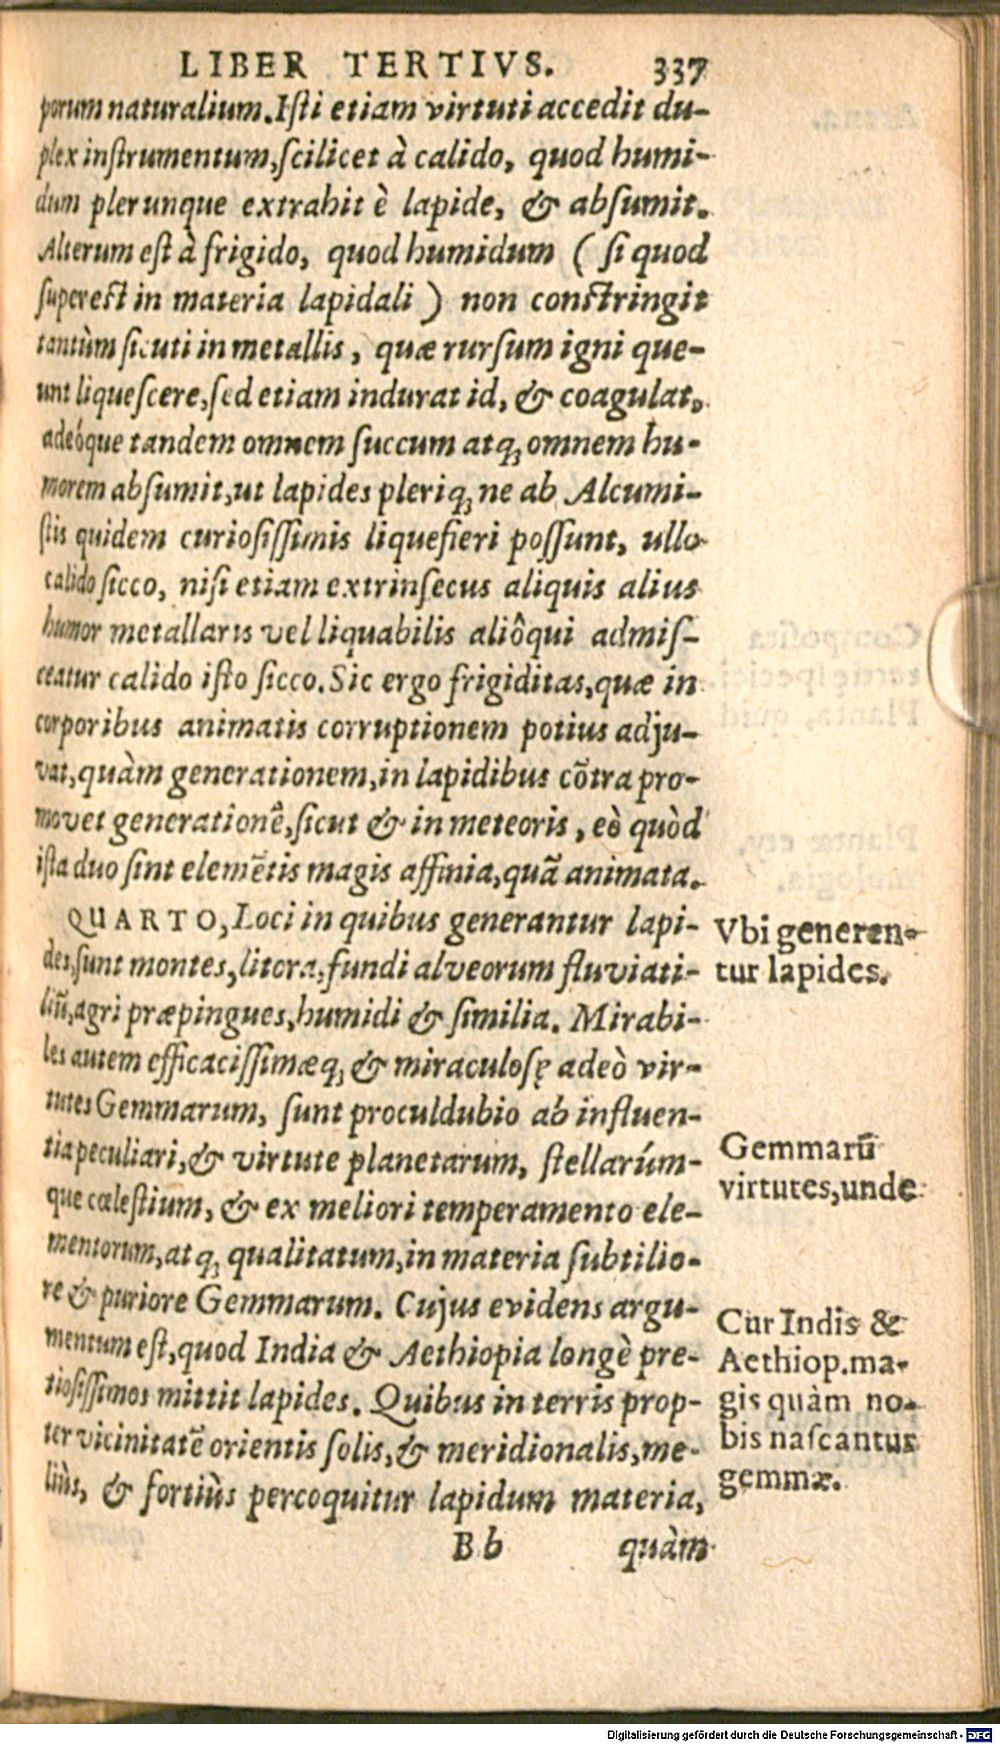 LIBER TERTIVS. 337
porum naturalium. Iſti etiam virtuti accedit du-
plex inſtrumentum, ſcilicet à calido, quod humi-
dum plerunque extrahit è lapide, & abſumit.
Alterum eſt à frigido, quod humidum ( ſi quod
ſupereſt in materia lapidali ) non conſtringit
tantùm ſicuti in metallis, quæ rurſum igni que-
unt liqueſcere, ſed etiam indurat id, & coagulat,
adeóque tandem omnem ſuccum atq; omnem hu-
morem abſumit, ut lapides pleriq; ne ab Alcumi-
ſtis quidem curioſiſſimis liquefieri poſſunt, ullo
calido ſicco, niſi etiam extrinſecus aliquis alius
humor metallaris vel liquabilis aliôqui admiſ-
ceatur calido iſto ſicco. Sic ergo frigiditas, quæ in
corporibus animatis corruptionem potius adju-
vat, quàm generationem, in lapidibus cõtra pro-
movet generationẽ, ſicut & in meteoris, eò quòd
iſta duo ſint elemẽtis magis affinia, quã animata.
QUARTO, Loci in quibus generantur lapi-
des, ſunt montes, litora, fundi alveorum fluviati-
liũ, agri præpingues, humidi & ſimilia. Mirabi-
les autem efficaciſſimæq; & miraculoſę adeò vir-
tutes Gemmarum, ſunt proculdubio ab influen-
tia peculiari, & virtute planetarum, ſtellarúm-
que cæleſtium, & ex meliori temperamento ele-
mentorum, atq; qualitatum, in materia ſubtilio-
re & puriore Gemmarum. Cujus evidens argu-
mentum eſt, quod India & Aethiopia longè pre-
tioſiſſimos mittit lapides. Quibus in terris prop-
ter vicinitatẽ orientis ſolis, & meridionalis, me-
liùs, & fortiùs percoquitur lapidum materia,
Bb quàm
Vbi generen-
tur lapides.
Gemmarũ
virtutes, unde
Cur Indis &
Aethiop. ma-
gis quàm no-
bis naſcantur
gemmæ.
Digitalisierung gefördert durch die Deutsche Forschungsgemeinschaft - DFG